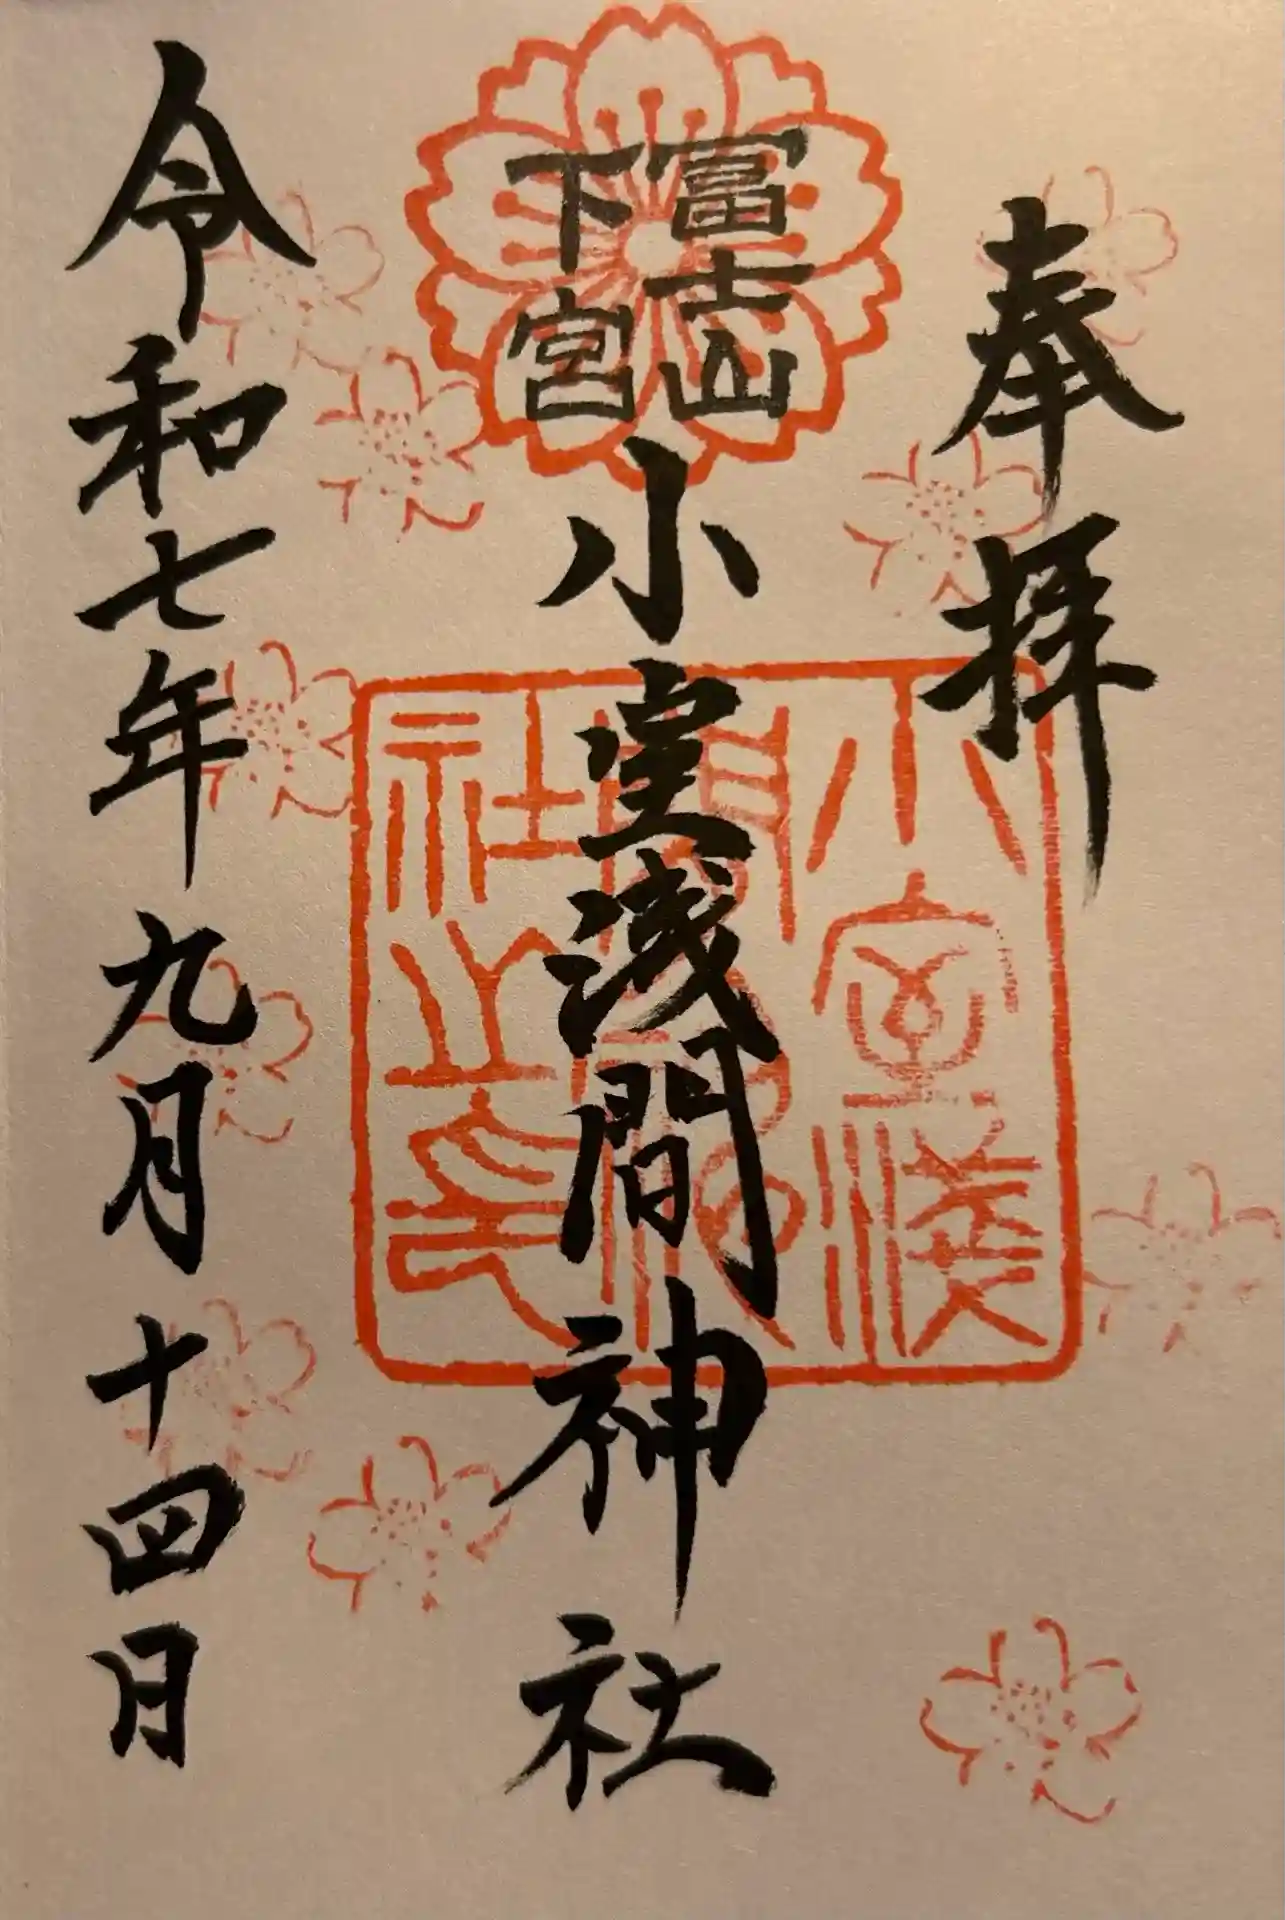 奉拝
富士山
下宮
小室浅間神社
小室浅間神社之印
令和七年九月十四日